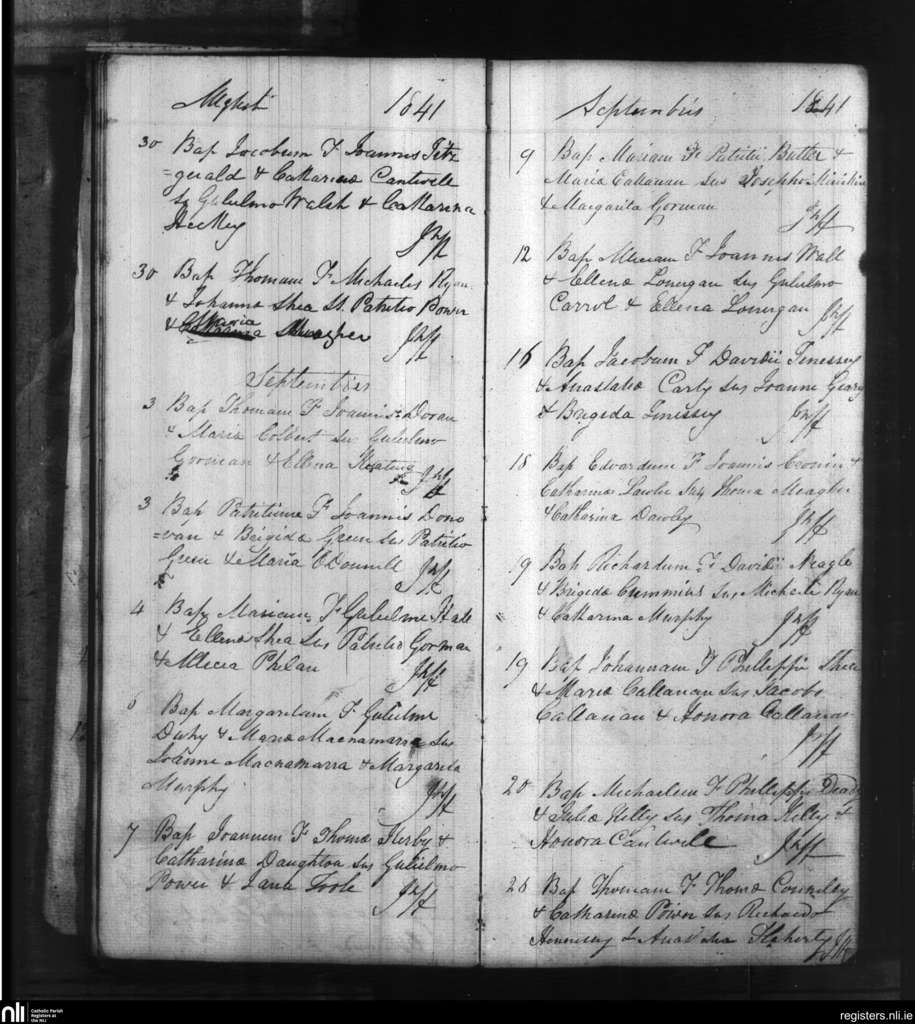 August 1841
30 Bap Jacobum F Joannis Fitz
=gerald & Catharinæ Cantwell
Ss Gulielmo Walsh & Catharina
Hickey
30 Bap Thomam F Michaelis Ryan
& Johanna Shea Ss Patritio Power
& Maria
Septembris
3 Bap Thomam F Joannis Doran
& Maria Colbert Sus Gulielmo
Gorman & Ellena Keating
3 Bap Patritium F Joannis Dono
=van & Brigida Green Sus Patritio
Green & Maria O Donnell
4 Bap Mariam F Gulielme
& Ellena Shea Sus Patritio Gorman
& Allecia Phelan
6 Bap Margaritam F Gulielme
& Maria Macnamarra Sus
Joanne Macnamarra & Margarita
Murphy
7 Bap Joannem F Thomæ &
Catharinæ Sus Gulielmo
Power & Jana Toole
Septembris 1841
9 Bap Mariam F Patritii Butler &
Maria Callanan Sus Josepho
& Margarita Gorman
12 Bap F Joannis Wall
& Ellenæ Lonergan Sus Gulielmo
Carrol & Ellena Lonergan
16 Bap Jacobum F Davidii
& Anastatiæ Sus Joanne Geary
& Brigida
18 Bap Edvardum F Joannis Cronin &
Catharinæ Lawler Sus Thoma Meagher
& Catharina
19 Bap Richardum F Davidii Neagle
& Brigida Cummins Sus Michaele Ryan
& Catharina Murphy
19 Bap Johannam F Phillippi Shea
& Maria Callanan Sus Jacobo
Callanan & Honora Callanan
20 Bap Michaelem F Phillippi Deady
& Julia Kelly Sus Thoma Kelly &
Honora Cantwell
26 Bap Thomam F Thomæ Connelly
& Catharinæ Power Sus Richardo
Hennessy & Flaherty
nli
Catholic Parish
Registers at
the NLI
registers.nli.ie